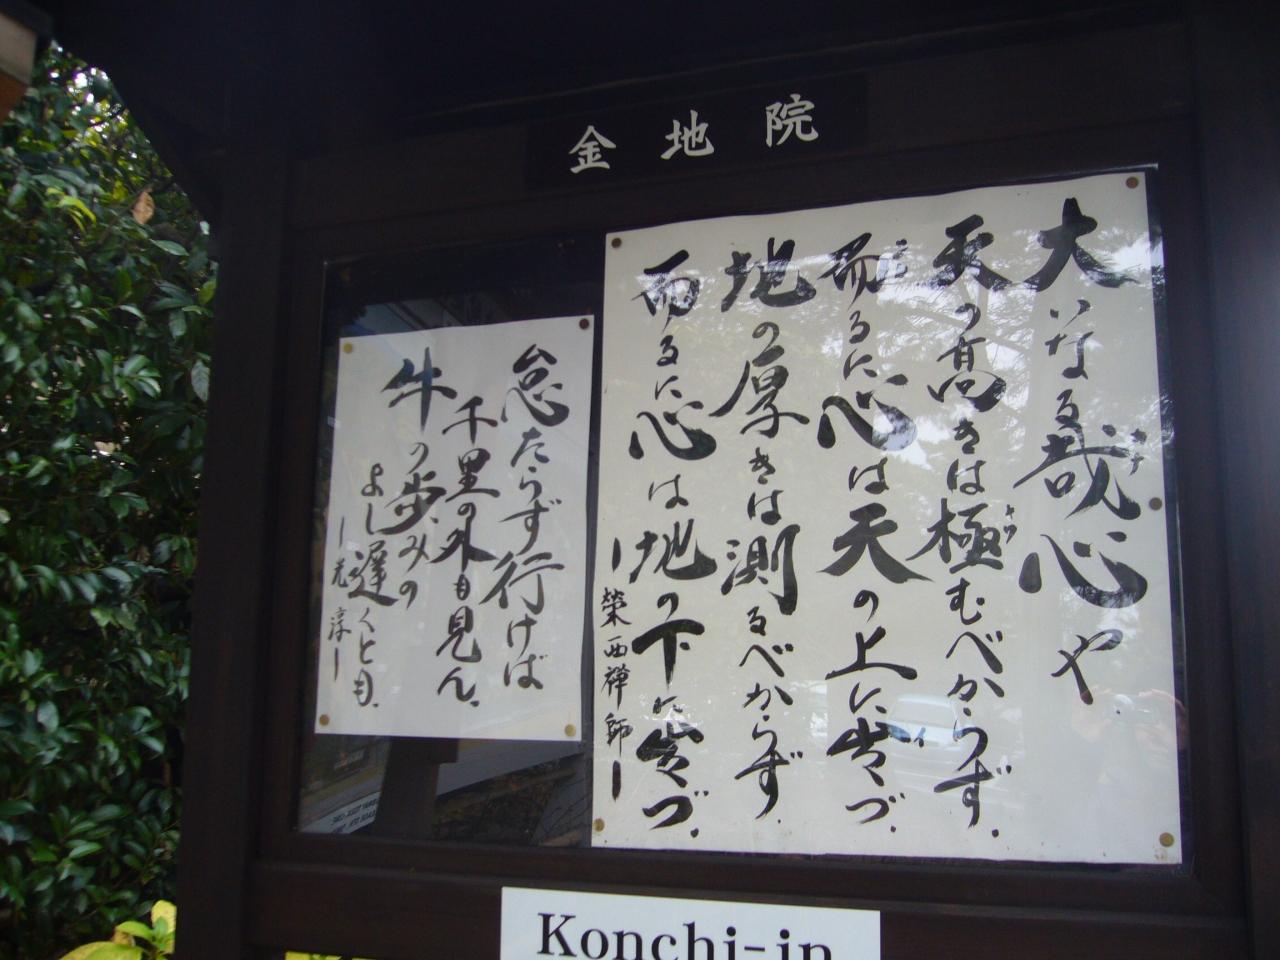 金地院
大いなる哉心や
天の高きは極むべからず.
而るに心は天の上に出づ.
地の厚きは測るべからず.
而るに心は地の下に出づ.
ー榮西禅師ー
怠たらず行けば
千里の外も見ん.
牛の歩みの
よし遅くとも.
Konchi-in